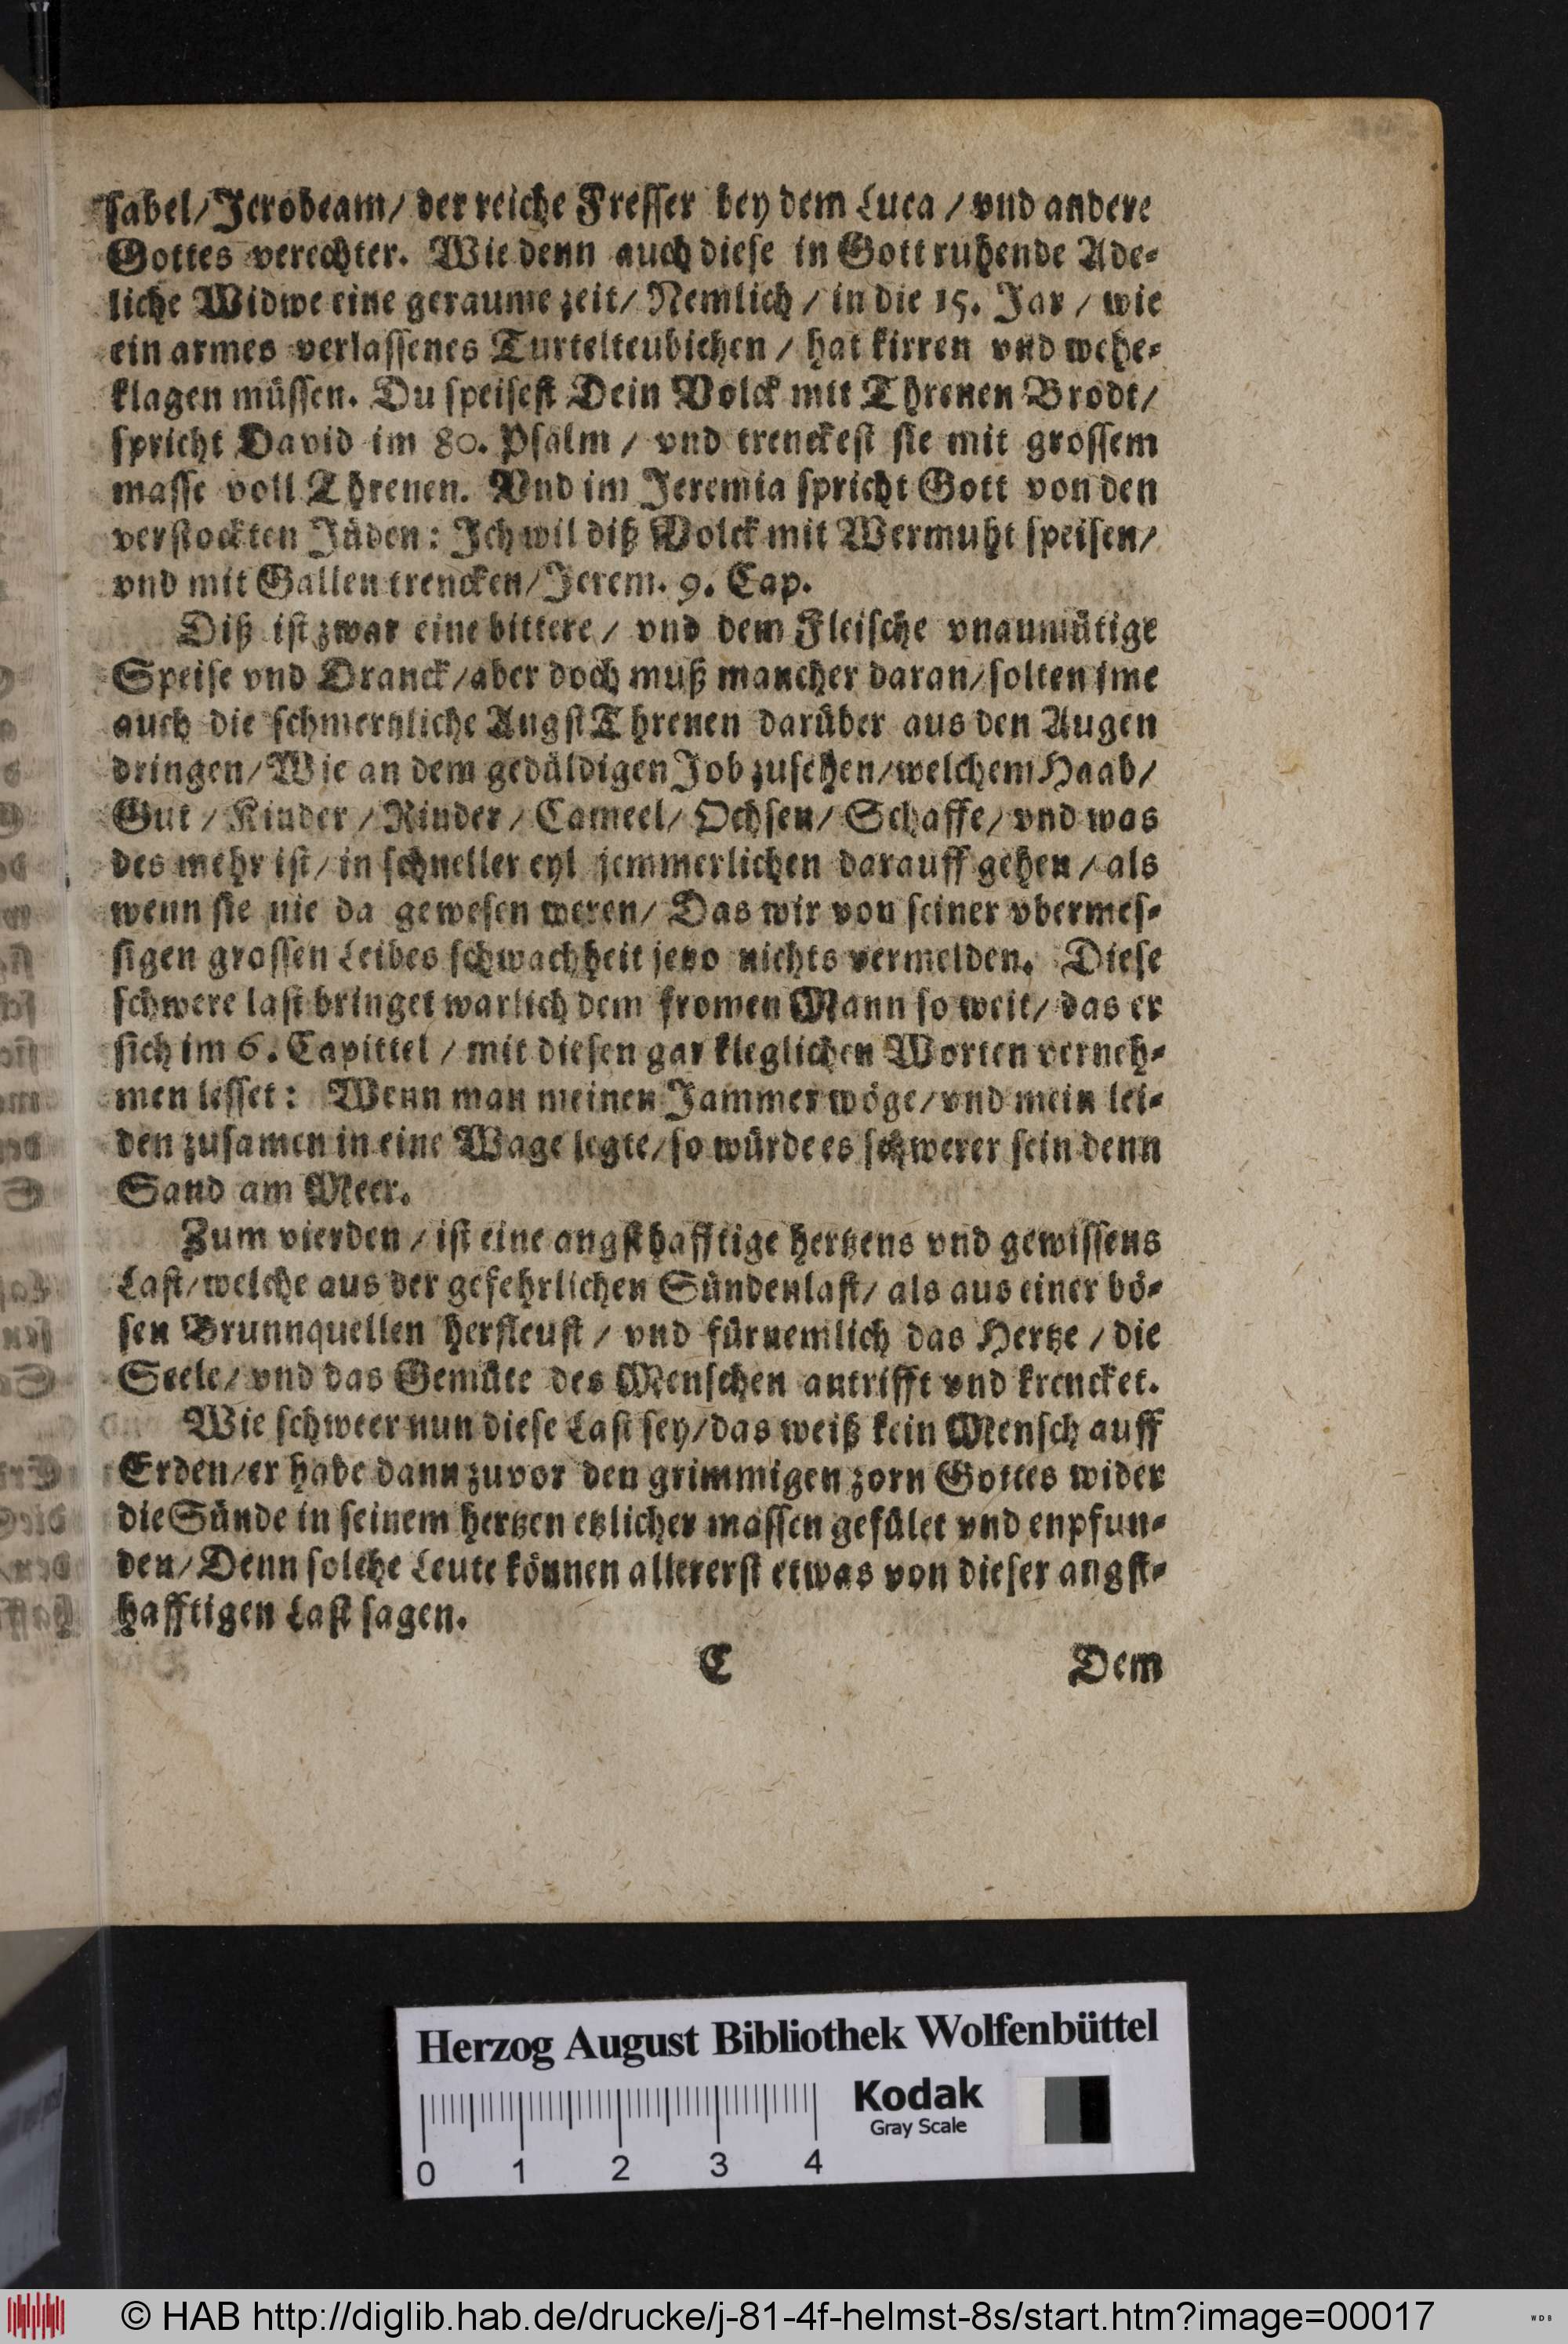 sabel/Jerobeam/ der reiche Fresser bey dem Luca / vnd andere
Gottes verechter. Wie denn auch diese in Gott ruhende Ade-
liche Widwe eine geraume zeit/ Nemlich / in die 15. Jar / wie
ein armes verlassenes Turtelteubichen / hat kirren vnd wehe-
klagen müssen. Du speisest Dein Volck mit Threnen Brodt/
spricht David im 80. Psalm / vnd trenckest sie mit grossem
masse voll Threnen. Vnd im Jeremia spricht Gott von den
verstockten Jüden: Ich wil diß Volck mit Wermuht speisen/
vnd mit Gallen trencken/Jerem. 9. Cap.
Diß ist zwar eine bittere / vnd dem Fleische vnanmütige
Speise vnd Dranck/aber doch muß mancher daran/solten ime
auch die schmertzliche Angst Threnen darüber aus den Augen
dringen/Wie an dem gedüldigen Job zusehen/welchem Haab/
Gut / Kinder / Rinder / Cameel/ Ochsen/ Schaffe/ vnd was
des mehr ist/ in schneller eyl jemmerlichen darauff gehen / als
wenn sie nie da gewesen weren/ Das wir von seiner vbermes-
sigen grossen Leibes schwachheit jetzo nichts vermelden. Diese
schwere last bringet warlich dem fromen Mann so weit/ das er
sich im 6. Capittel / mit diesen gar kleglichen Worten verneh-
men lesset: Wenn man meinen Jammer wöge/vnd mein lei-
den zusamen in eine Wage legte/so würde es schwerer sein denn
Sand am Meer.
Zum vierden / ist eine angsthafftige hertzens vnd gewissens
Last/welche aus der gefehrlichen Sündenlast/ als aus einer bö-
sen Brunnquellen herfleust / vnd fürnemlich das Hertze / die
Seele/ vnd das Gemüte des Menschen antrifft vnd krencket.
Wie schweer nun diese Last sey/das weiß kein Mensch auff
Erden/er habe dann zuvor den grimmigen zorn Gottes wider
die Sünde in seinem hertzen etzlicher massen gefület vnd enpfun-
den/Denn solche Leute können allererst etwas von dieser angst-
hafftigen Last sagen.
C Dem
Herzog August Bibliothek Wolfenbüttel
Kodak
Gray Scale
0 1 2 3 4
© HAB http://diglib.hab.de/drucke/j-81-4f-helmst-8s/start.htm?image=00017
WDB